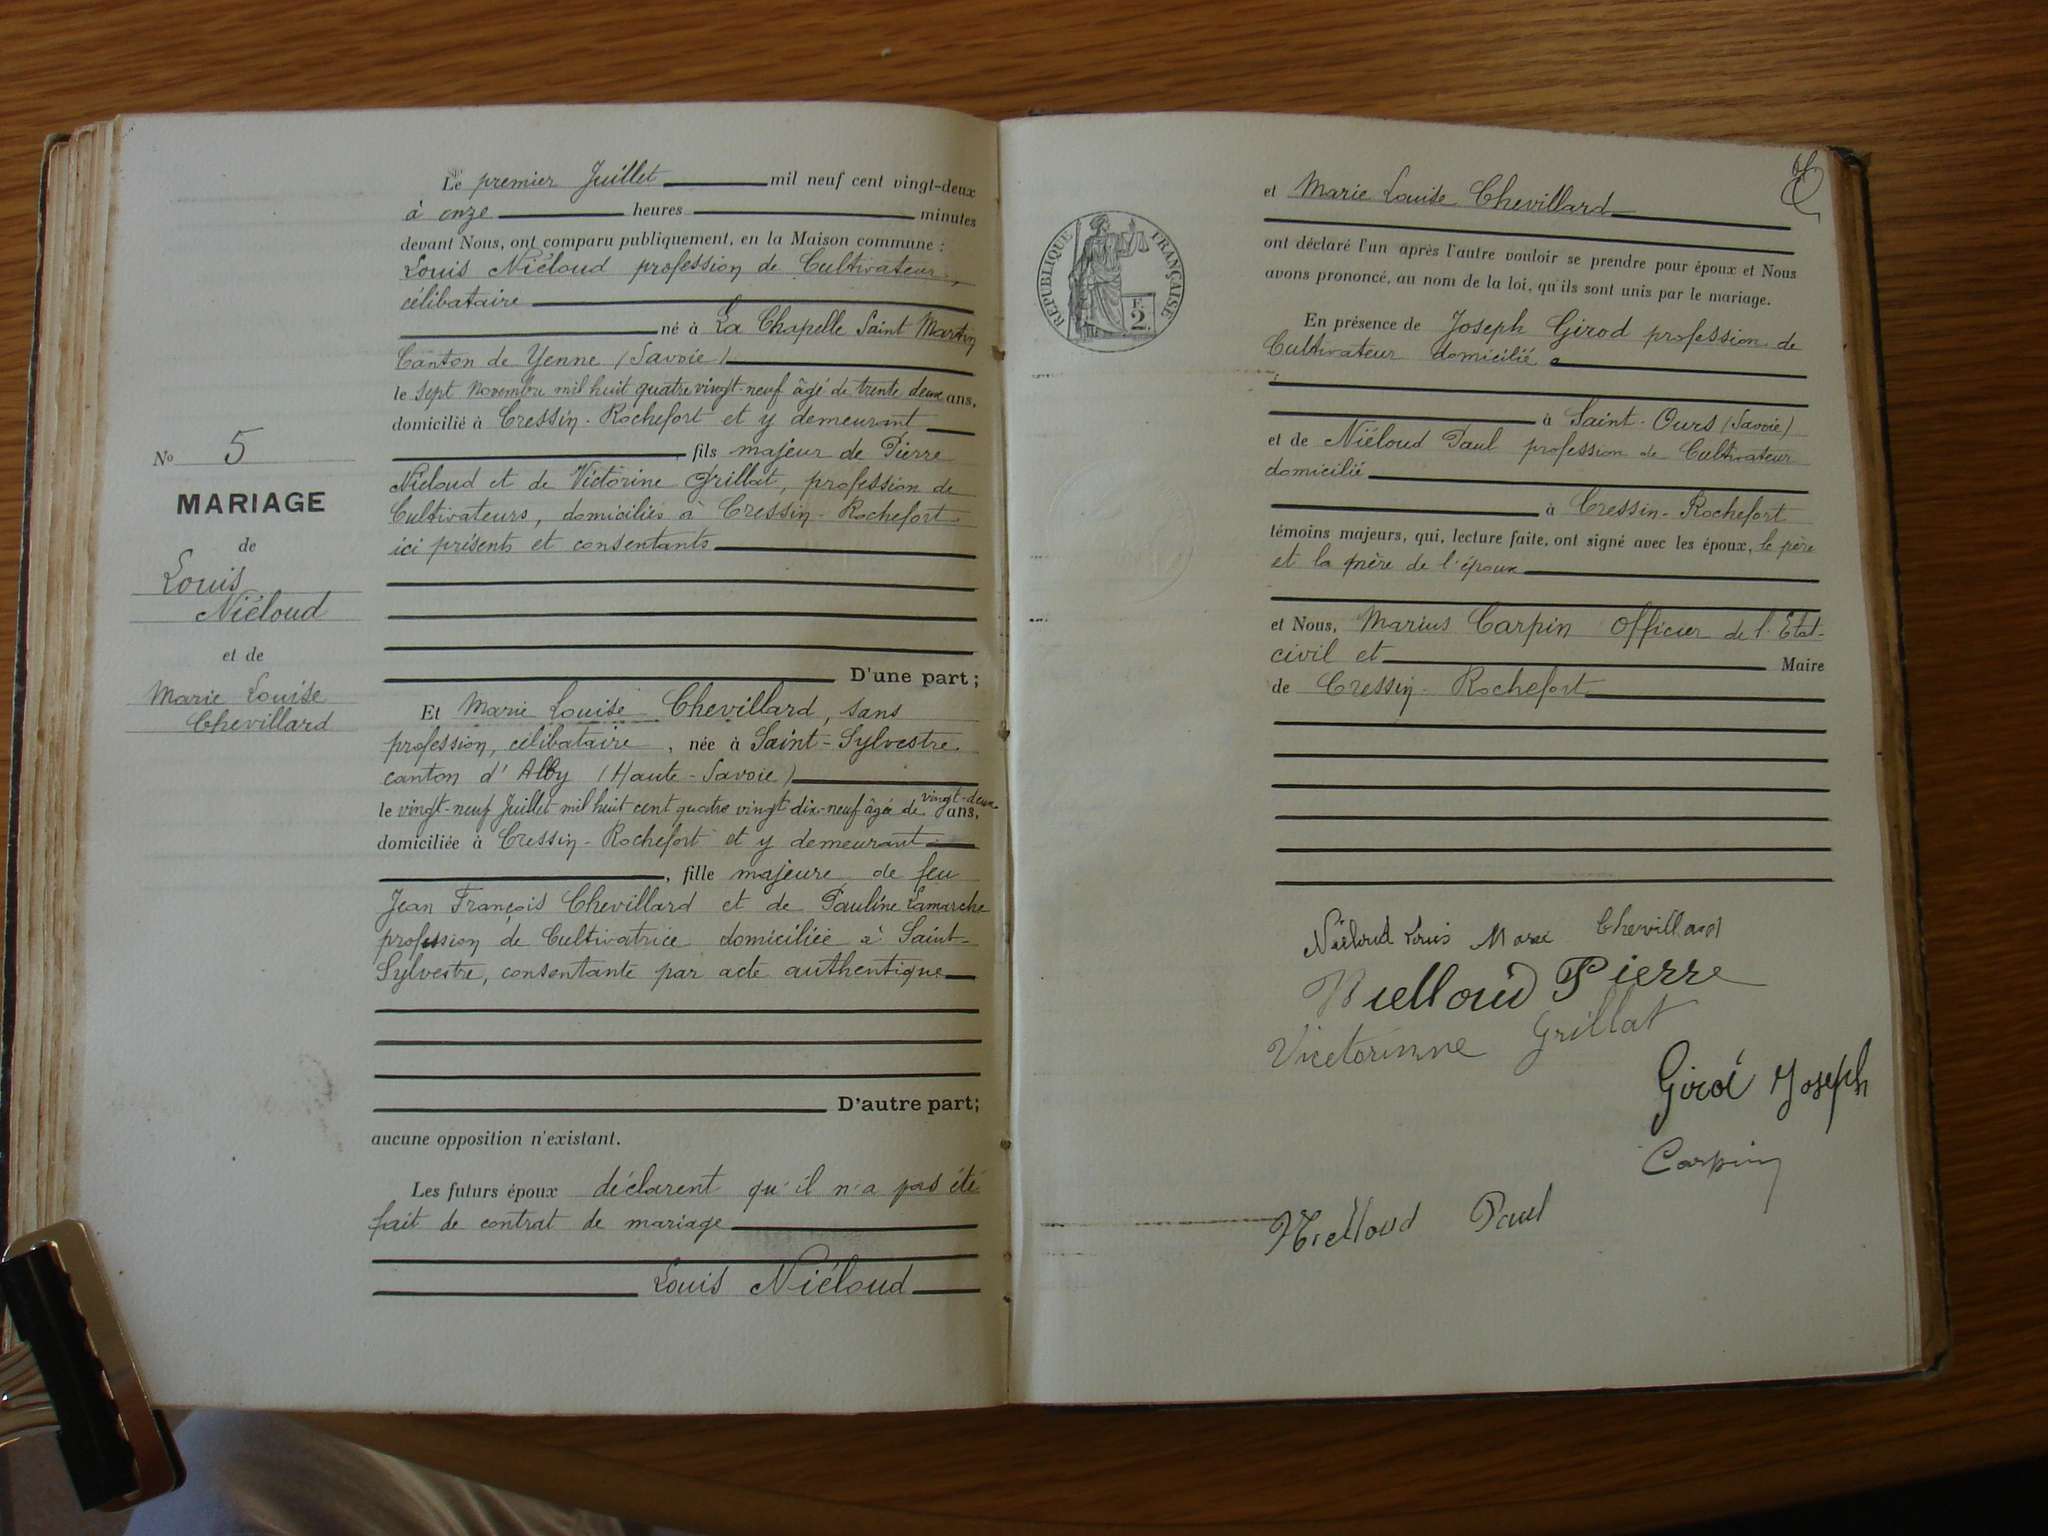 Le premier Juillet mil neuf cent vingt-deux
à onze heures minutes
devant Nous, ont comparu publiquement, en la Maison commune :
Louis Niéloud profession de Cultivateur,
célibataire
né à La Chapelle Saint Martin
Canton de Yenne (Savoie)
le sept novembre mil huit quatre vingt-neuf âgé de trente deux ans,
domicilié à Cressin-Rochefort et y demeurant
fils majeur de Pierre
Niéloud et de Victorine Grillat, profession de
Cultivateurs, domiciliés à Cressin-Rochefort.
ici présents et consentants
D'une part ;
No 5
MARIAGE
de
Louis
Niéloud
et de
Marie Louise
Chevillard
Et Marie Louise Chevillard, sans
profession, célibataire, née à Saint-Sylvestre
canton d'Alby (Haute-Savoie)
le vingt-neuf Juillet mil huit cent quatre vingt dix-neuf âgée de vingt-deux ans,
domiciliée à Cressin-Rochefort et y demeurant
, fille majeure de feu
Jean François Chevillard et de Pauline Lamarche
profession de Cultivatrice domiciliée à Saint-
Sylvestre, consentante par acte authentique
D'autre part ;
aucune opposition n'existant.
Les futurs époux déclarent qu'il n'a pas été
fait de contrat de mariage
Louis Niéloud
RÉPUBLIQUE FRANÇAISE
F.
2.
et Marie Louise Chevillard
ont déclaré l'un après l'autre vouloir se prendre pour époux et Nous
avons prononcé, au nom de la loi, qu'ils sont unis par le mariage.
En présence de Joseph Girod profession de
Cultivateur domicilié
à Saint-Ours (Savoie)
et de Niéloud Paul profession de Cultivateur
domicilié
à Cressin-Rochefort
témoins majeurs, qui, lecture faite, ont signé avec les époux, le père
et la mère de l'époux
et Nous, Marius Carpin Officier de l'Etat-
civil et Maire
de Cressin-Rochefort
Niéloud Louis Marie Chevillard
Nielloud Pierre
Victorinne Grillat
Girod Joseph
Carpin
Nielloud Paul